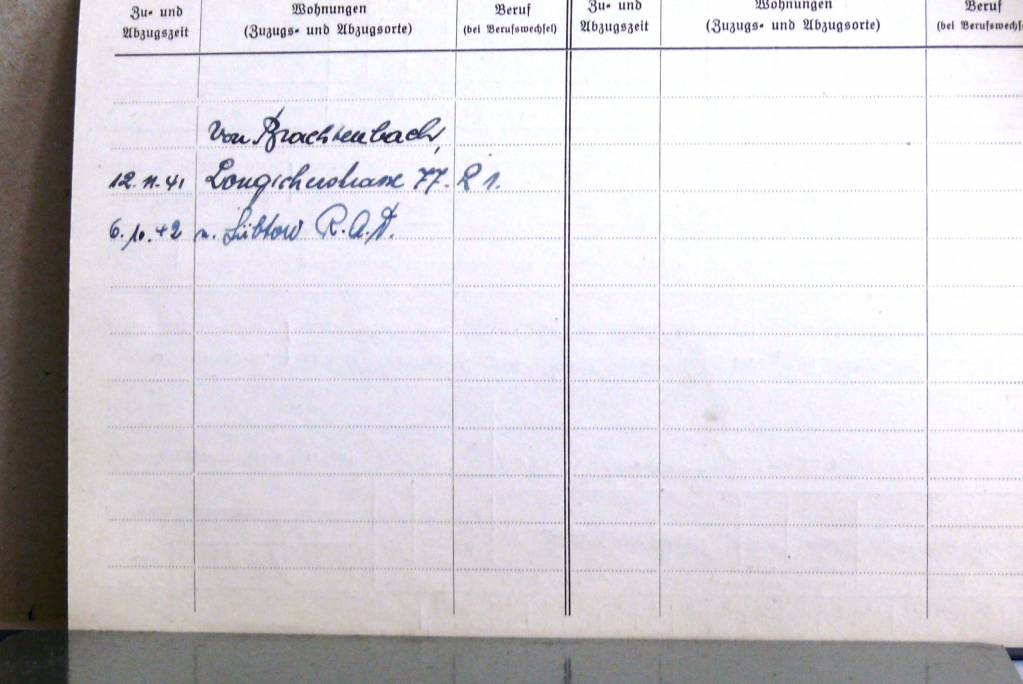 Zu- und Wohnungen Beruf Zu- und Wohnungen Beruf
Abzugszeit (Zuzugs- und Abzugsorte) (bei Berufswechsel) Abzugszeit (Zuzugs- und Abzugsorte) (bei Berufswechsel
von Brachtenbach,
12. 11. 41 77.
6. 10. 42 n. Lübtow R.A.D.